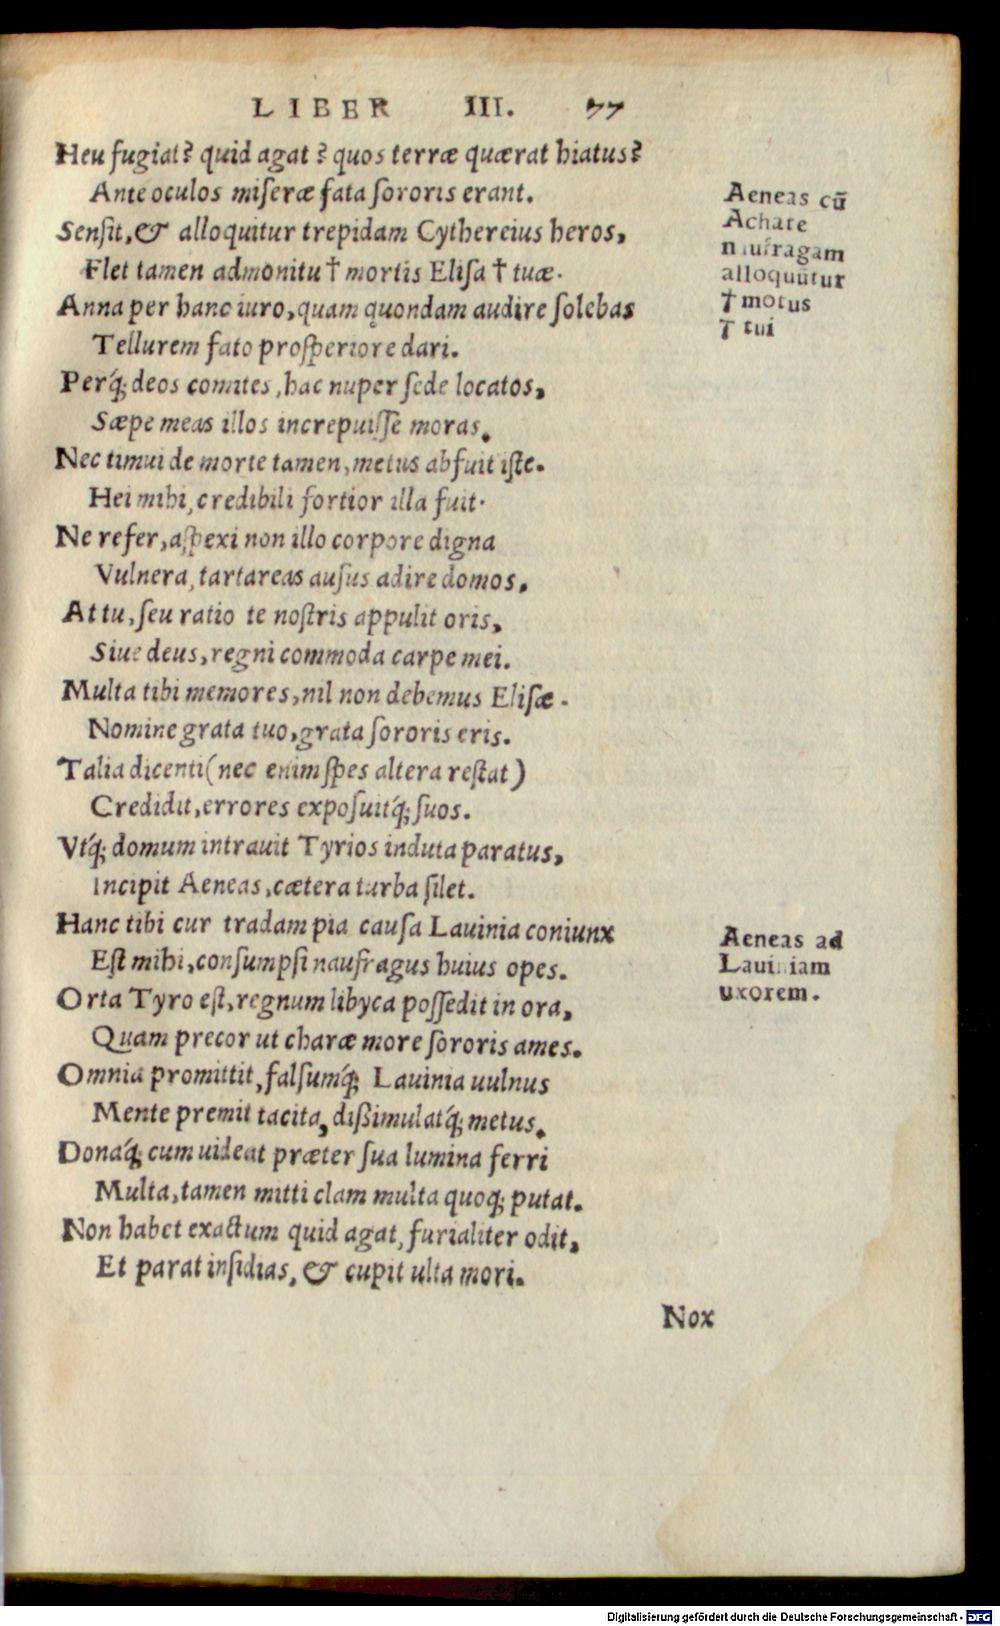 LIBER III. 77
Heu fugiat? quid agat? quos terræ quærat hiatus?
Ante oculos miseræ fata sororis erant.
Sensit, & alloquitur trepidam Cythereius heros,
Flet tamen admonitu † mortis Elisa † tuæ.
Anna per hanc iuro, quam quondam audire solebas
Tellurem fato prosperiore dari.
Perq́; deos comites, hac nuper sede locatos,
Sæpe meas illos increpuisse moras.
Nec timui de morte tamen, metus abfuit iste.
Hei mihi, credibili fortior illa fuit.
Ne refer, aspexi non illo corpore digna
Vulnera, tartareas ausus adire domos.
At tu, seu ratio te nostris appulit oris,
Siue deus, regni commoda carpe mei.
Multa tibi memores, nil non debemus Elisæ.
Nomine grata tuo, grata sororis eris.
Talia dicenti (nec enim spes altera restat)
Credidit, errores exposuitq́; suos.
Vtq́; domum intrauit Tyrios induta paratus,
Incipit Aeneas, cætera turba silet.
Hanc tibi cur tradam pia causa Lauinia coniunx
Est mihi, consumpsi naufragus huius opes.
Orta Tyro est, regnum libyca possedit in ora,
Quam precor ut charæ more sororis ames.
Omnia promittit, falsumq́; Lauinia uulnus
Mente premit tacita, dißimulatq́; metus.
Donaq́; cum uideat præter sua lumina ferri
Multa, tamen mitti clam multa quoq; putat.
Non habet exactum quid agat, furialiter odit,
Et parat insidias, & cupit ulta mori.
Nox
Aeneas cũ
Achate
naufragam
alloquũtur
† motus
† tui
Aeneas ad
Lauiniam
uxorem.
Digitalisierung gefördert durch die Deutsche Forschungsgemeinschaft - DFG